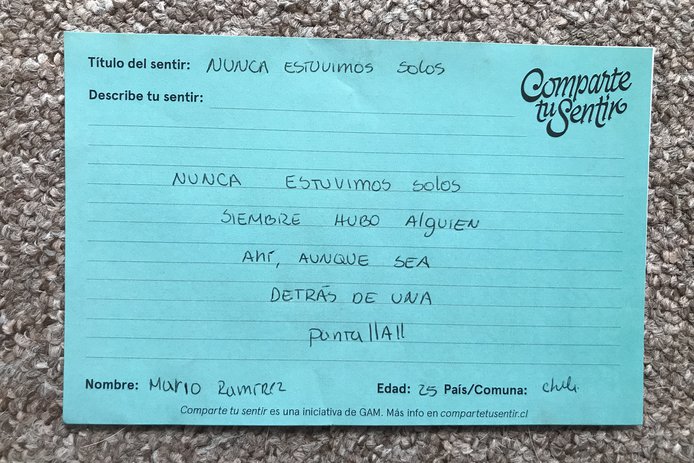 Título del sentir: NUNCA ESTUVIMOS SOLOS
Comparte
tu Sentir
Describe tu sentir:
NUNCA ESTUVIMOS SOLOS
SIEMBRE HUBO AlguIEN
AHÍ, AUNQUE SEA
DETRÁS DE UNA
pantallA!!
Nombre: Mario Ramírez Edad: 25 País/Comuna: Chile
Comparte tu sentir es una iniciativa de GAM. Más info en compartetusentir.cl